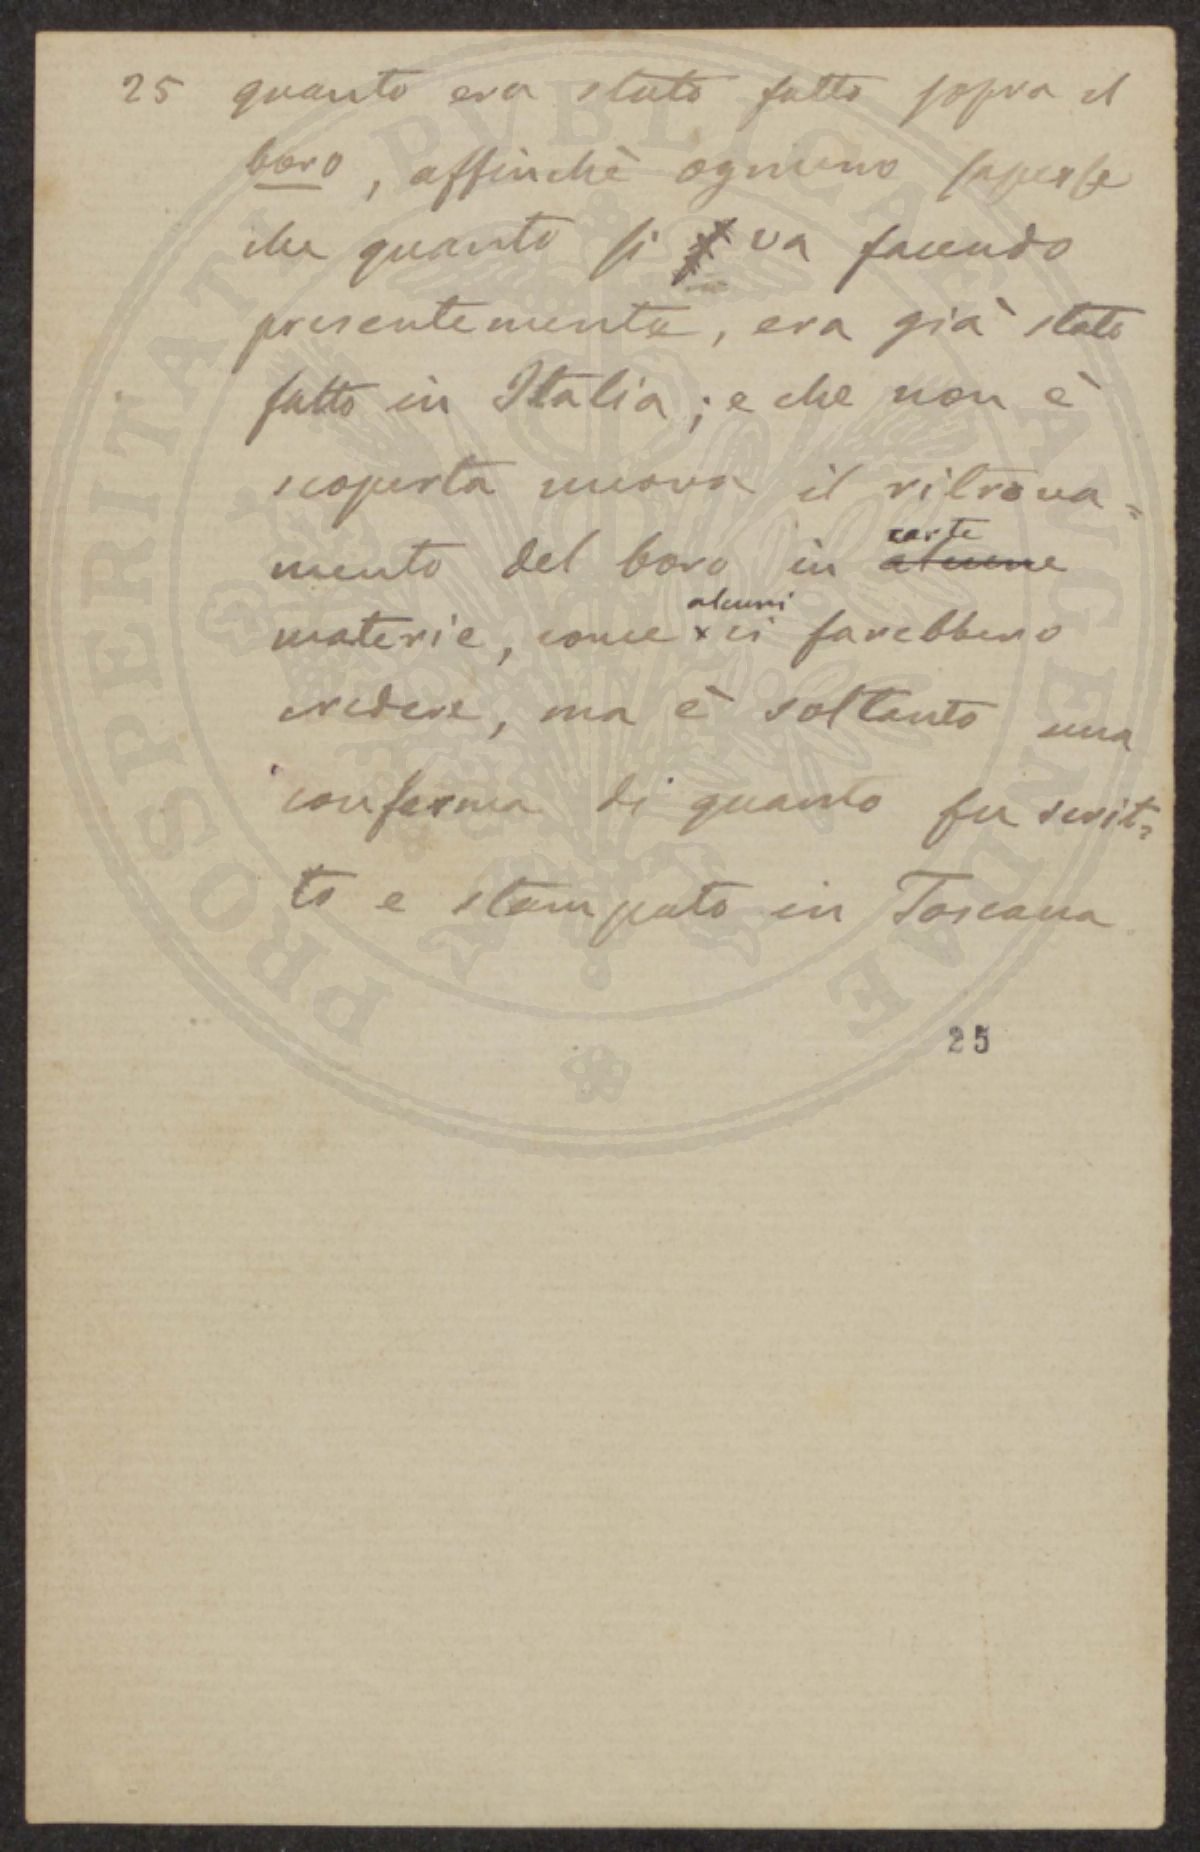 25 quanto era stato fatto sopra il
boro, affinchè ognuno sapesse
che quanto si va facendo
presentemente, era già stato
fatto in Italia; e che non è
scoperta nuova il ritrova=
mento del boro in certe alcune
materie, come alcuni x ci farebbero
credere, ma è soltanto una
conferma di quanto fu scrit=
to e stampato in Toscana
25
PROSPERITATI PVBLICAE AVGENDAE